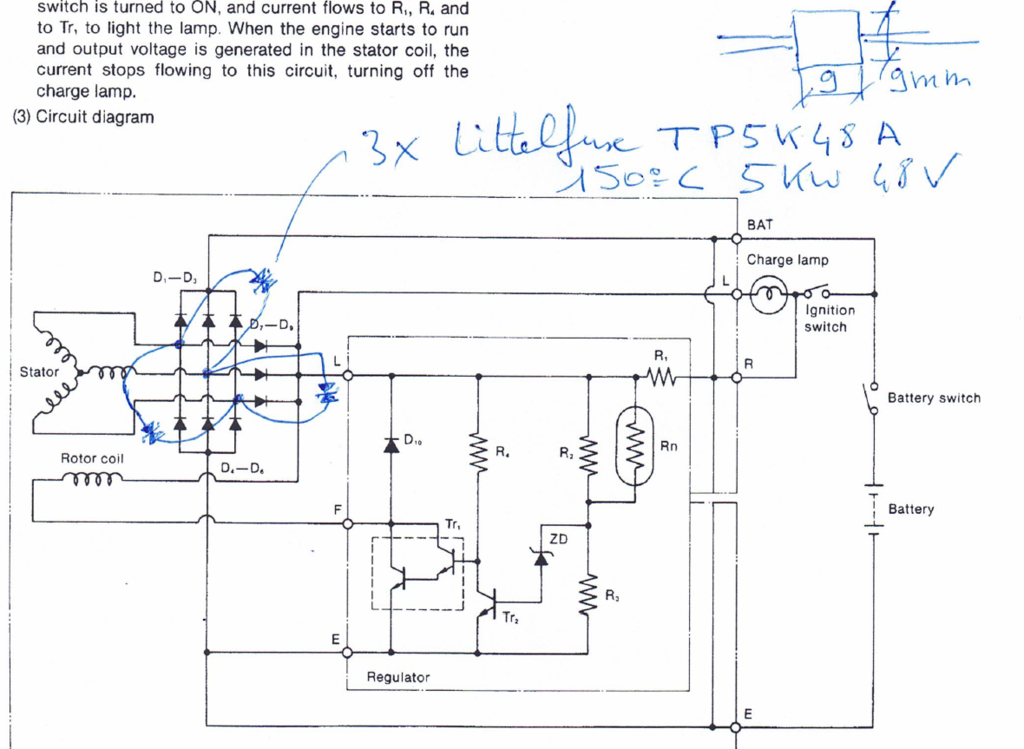 switch is turned to ON, and current flows to R₁, R₄ and
to Tr, to light the lamp. When the engine starts to run
and output voltage is generated in the stator coil, the
current stops flowing to this circuit, turning off the
charge lamp.
(3) Circuit diagram
9
9mm
3x Littelfuse TP5K48A
150°C 5KW 48V
BAT
Charge lamp
D₁—D₃
L
Ignition
switch
D₇—D₉
Stator
L
R₁
R
Battery switch
D₁₀
R₄
R₂
Rn
Rotor coil
D₄—D₆
F
Tr₁
ZD
Battery
R₃
Tr₂
E
Regulator
E